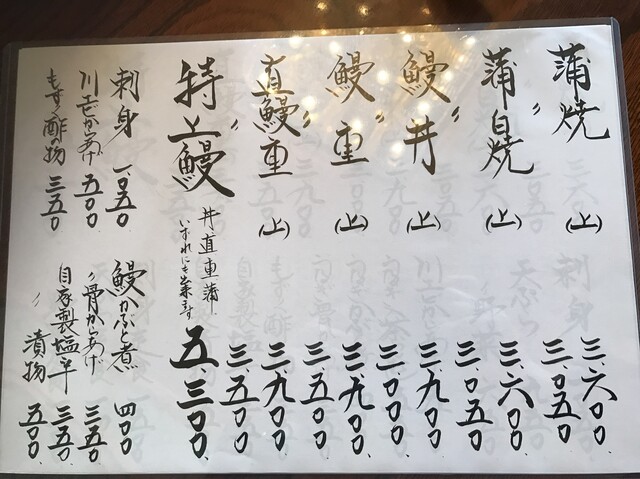 蒲焼 (上) 三、六〇〇
三、〇五〇
蒲白焼 〃 (上) 三、六〇〇
三、〇五〇
鰻丼 〃 (上) 三、九〇〇
三、〇〇〇
鰻重 〃 (上) 三、九〇〇
三、五〇〇
直鰻重 〃 (上) 三、九〇〇
三、五〇〇
特上鰻 丼直重蒲 いずれにも出来ます 五、三〇〇
刺身 一、〇五〇
川エビからあげ 五〇〇
もずく酢の物 三五〇
鰻かぶと煮 四〇〇
〃骨からあげ 三五〇
自家製塩辛 三五〇
〃 漬物 五〇〇